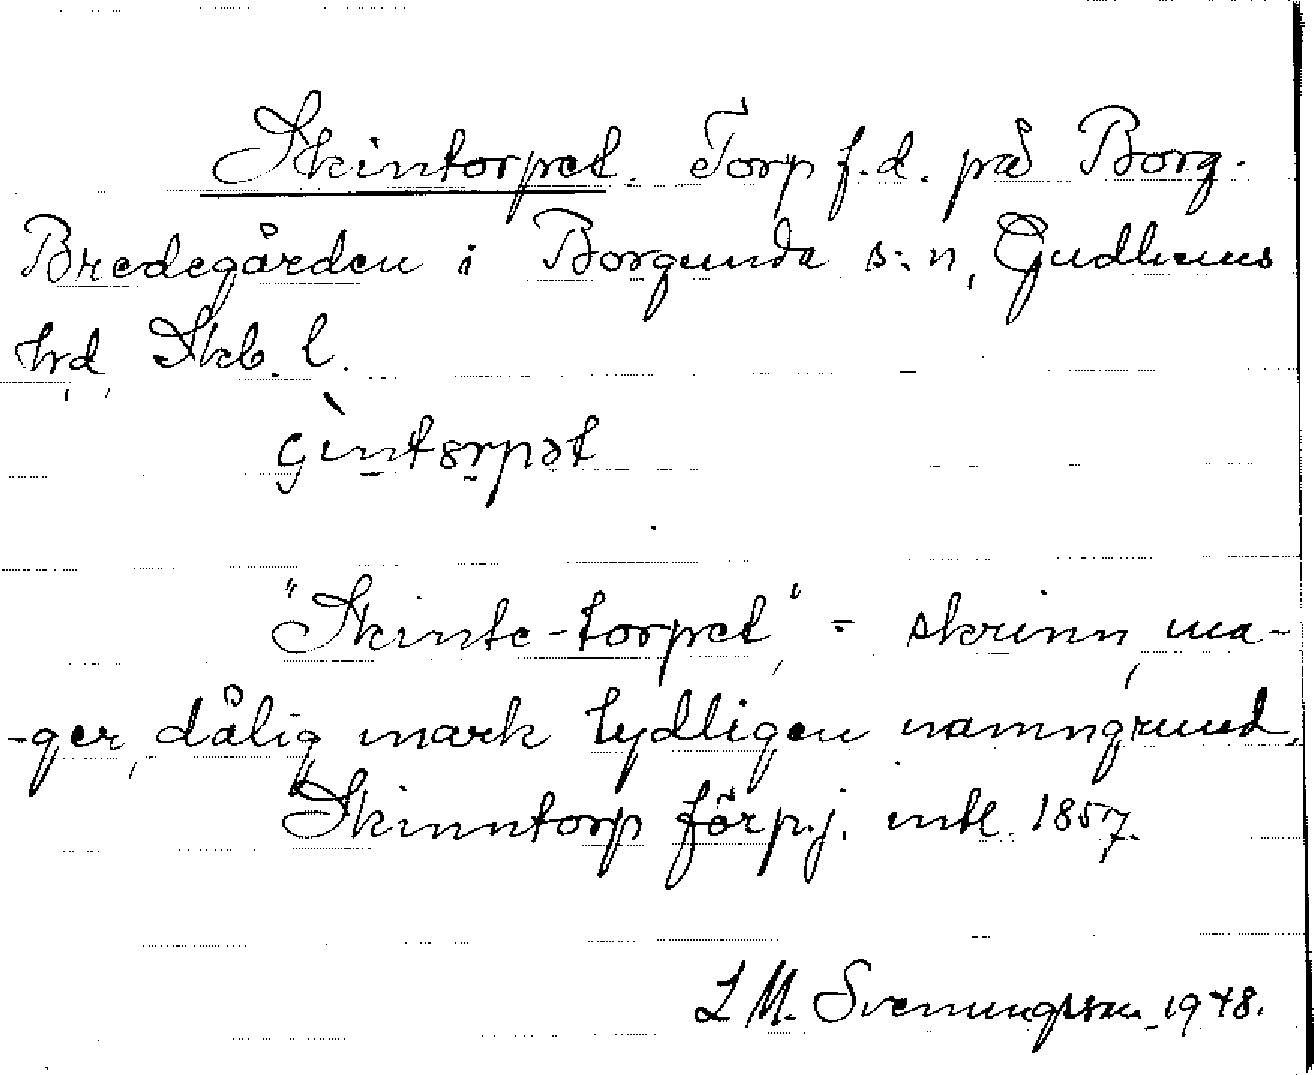 Skintorpet. Torp f.d. på Borg.
Bredegården i Borgunda s:n, Gudhems
hrd, Skb. l.
çìntɞrpət
"Skinte-torpet", = skrinn, ma-
-ger, dålig mark tydligen namngrund.
Skinntorp förp.j. enl. 1857.
L M. Svenungsson 1948.